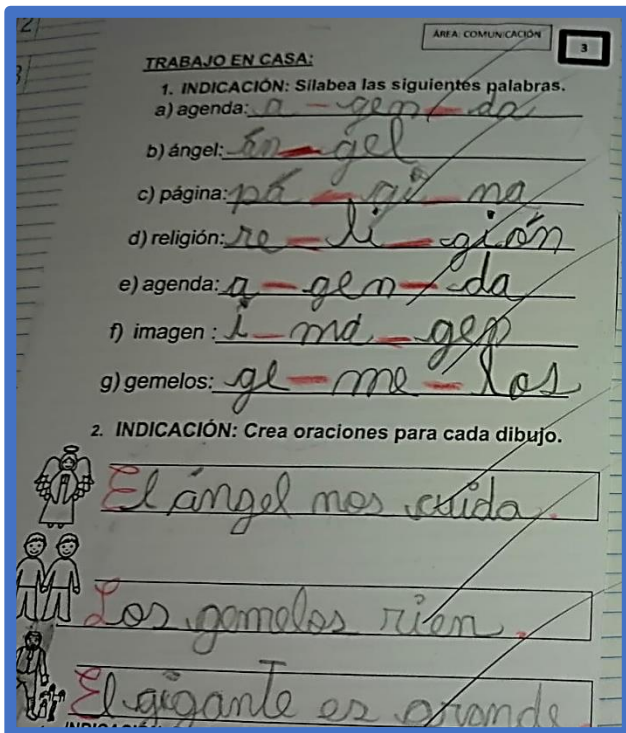 ÁREA: COMUNICACIÓN
3
TRABAJO EN CASA:
1. INDICACIÓN: Silabea las siguientes palabras.
a) agenda: a - gen - da
b) ángel: án - gel
c) página: pá - gi - na
d) religión: re - li - gión
e) agenda: a - gen - da
f) imagen : i - ma - gen
g) gemelos: ge - me - los
2. INDICACIÓN: Crea oraciones para cada dibujo.
El ángel nos cuida.
Los gemelos rien.
El gigante es grande.